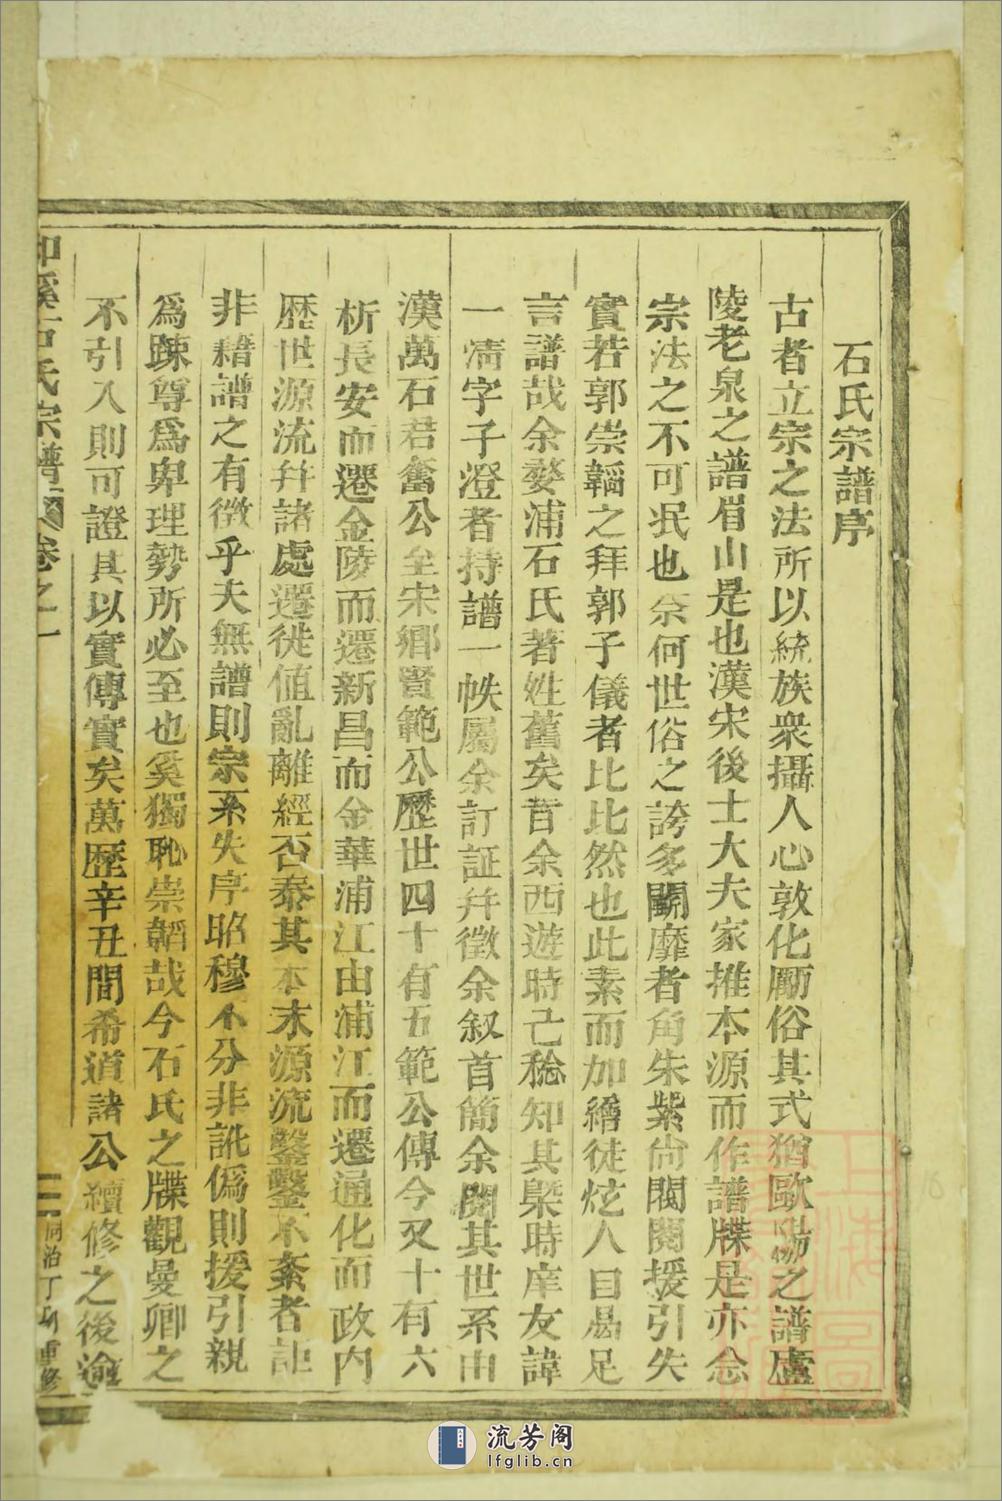 石氏宗譜序
古者立宗之法所以統族衆攝人心敦化勵俗其式猶歐陽之譜廬
陵老泉之譜眉山是也漢宋後士大夫家推本源而作譜牒是亦念
宗法之不可泯也奈何世俗之誇多鬬靡者角朱紫尙閥閱援引失
實若郭崇韜之拜郭子儀者比比然也此素而加繪徒炫人目曷足
言譜哉余婺浦石氏著姓舊矣昔余西遊時已稔知其槩時庠友諱
一清字子澄者持譜一帙屬余訂証幷徵余叙首簡余閱其世系由
漢萬石君奮公至宋鄉賢範公歷世四十有五範公傳今又十有六
析長安而遷金陵而遷新昌而金華浦江由浦江而遷通化而政内
歷世源流幷諸處遷徙值亂離經否泰其本末源流鑿鑿不紊者詎
非藉譜之有徵乎夫無譜則宗系失序昭穆不分非訛僞則援引親
爲踈尊爲卑理勢所必至也奚獨恥崇韜哉今石氏之牒觀曼卿之
不引入則可證其以實傳實矣萬歷辛丑間希道諸公續修之後逾
石氏宗譜 卷之一 二 同治丁卯重修
流芳阁
lfglib.cn